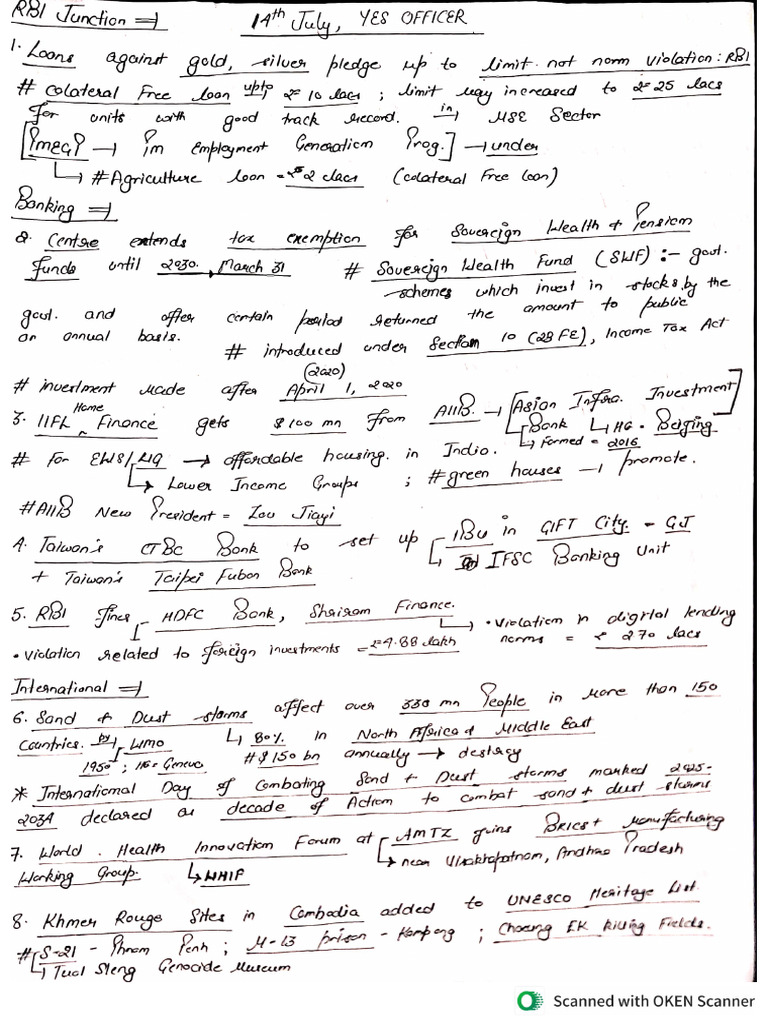 RBI Junction ⇒ 14th July, YES OFFICER
1. Loans against gold, silver pledge up to limit not norm violation: RBI
# Colateral Free loan upto ₹ 10 lacs ; limit may increased to ₹ 25 lacs
for units with good track record. in → MSE Sector
[PMEGP → Pm Employment Generation Prog.] → under
↳ # Agriculture loan = ₹ 2 lacs (colateral Free loan)
Banking ⇒
2. Centre extends tax exemption for Sovereign Wealth + Pension
funds until 2030, March 31 # Sovereign Wealth Fund (SWF) :- govt.
schemes which invest in stocks, by the
govt. and after certain period returned the amount to public
on annual basis. # introduced under Section 10 (23 FE), Income Tax Act
(2020)
# investment made after April 1, 2020
3. IIFL Home Finance gets $ 100 mn from AIIB → [Asian Infra. Investment
Bank ↳ HQ - Beijing]
↳ Formed = 2016
# For EWS/LIG → affordable housing in India.
↳ Lower Income Groups ; # green houses → promote.
# AIIB New President = Zou Jiayi
4. Taiwan's CTBC Bank to set up IBU in GIFT City - GJ
+ Taiwan's Taipei Fubon Bank IFSC Banking Unit
5. RBI fines HDFC Bank, Shriram Finance.
↳ • Violation in digital lending
norms = ₹ 2.70 lacs
• violation related to foreign investments = ₹ 4.88 lakh
International ⇒
6. Sand + Dust storms affect over 330 mn People in more than 150
Countries. by WMO ↳ 80% in North Africa & Middle East
1950 ; HQ = Geneva # $ 150 bn annually → destroy
* International Day of Combating Sand + Dust storms marked 2025-
2034 declared as decade of Action to combat sand + dust storms
7. World Health Innovation Forum at AMTZ joins BRICS+ Manufacturing
Working Group. ↳ WHIF ↳ near Visakhapatnam, Andhra Pradesh
8. Khmer Rouge Sites in Cambodia added to UNESCO Heritage List.
# S-21 - Phnom Penh ; M-13 prison - Kampong ; Choeung EK Killing Fields.
↳ Tuol Sleng Genocide Museum
Scanned with OKEN Scanner